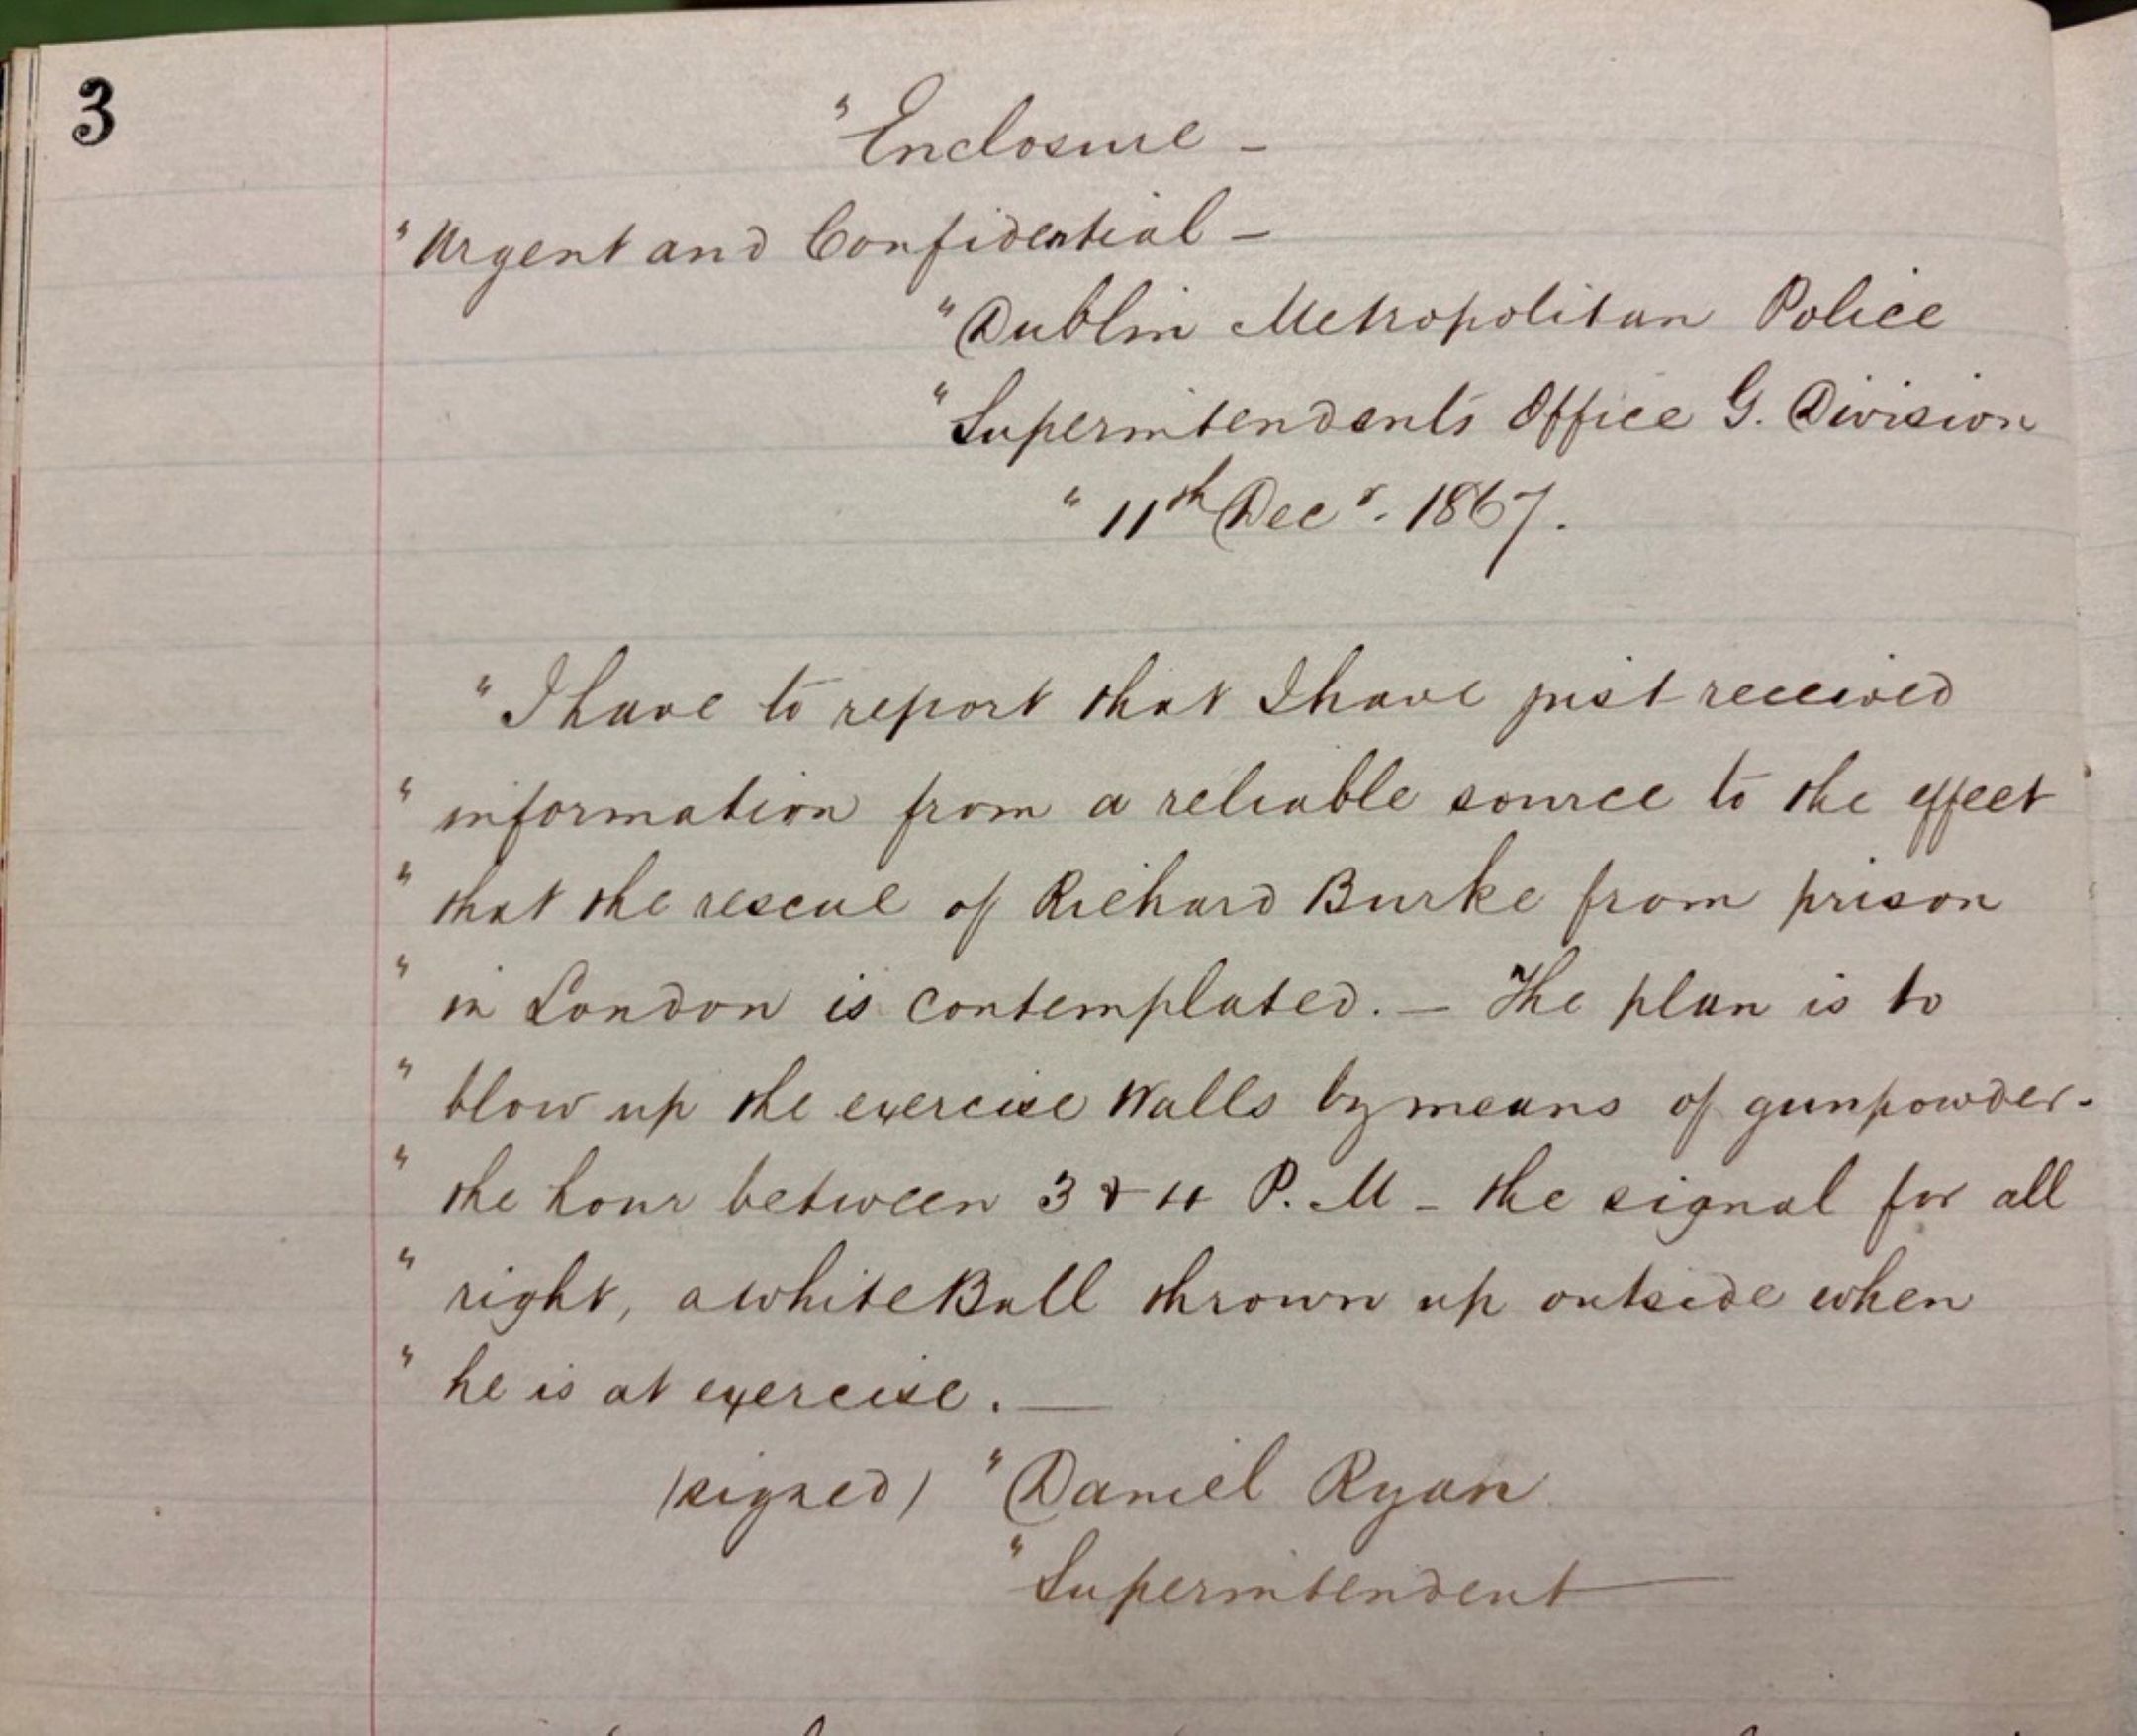 3
"Enclosure –
"Urgent and Confidential –
"Dublin Metropolitan Police
"Superintendents Office G. Division
" 11th Decr. 1867.
"I have to report that I have just received
" information from a reliable source to the effect
" that the rescue of Richard Burke from prison
" in London is contemplated. – The plan is to
" blow up the exercise Walls by means of gunpowder –
" the hour between 3 & 4 P. M – the signal for all
" right, a white Ball thrown up outside when
" he is at exercise. —
(signed) "Daniel Ryan
"Superintendent —